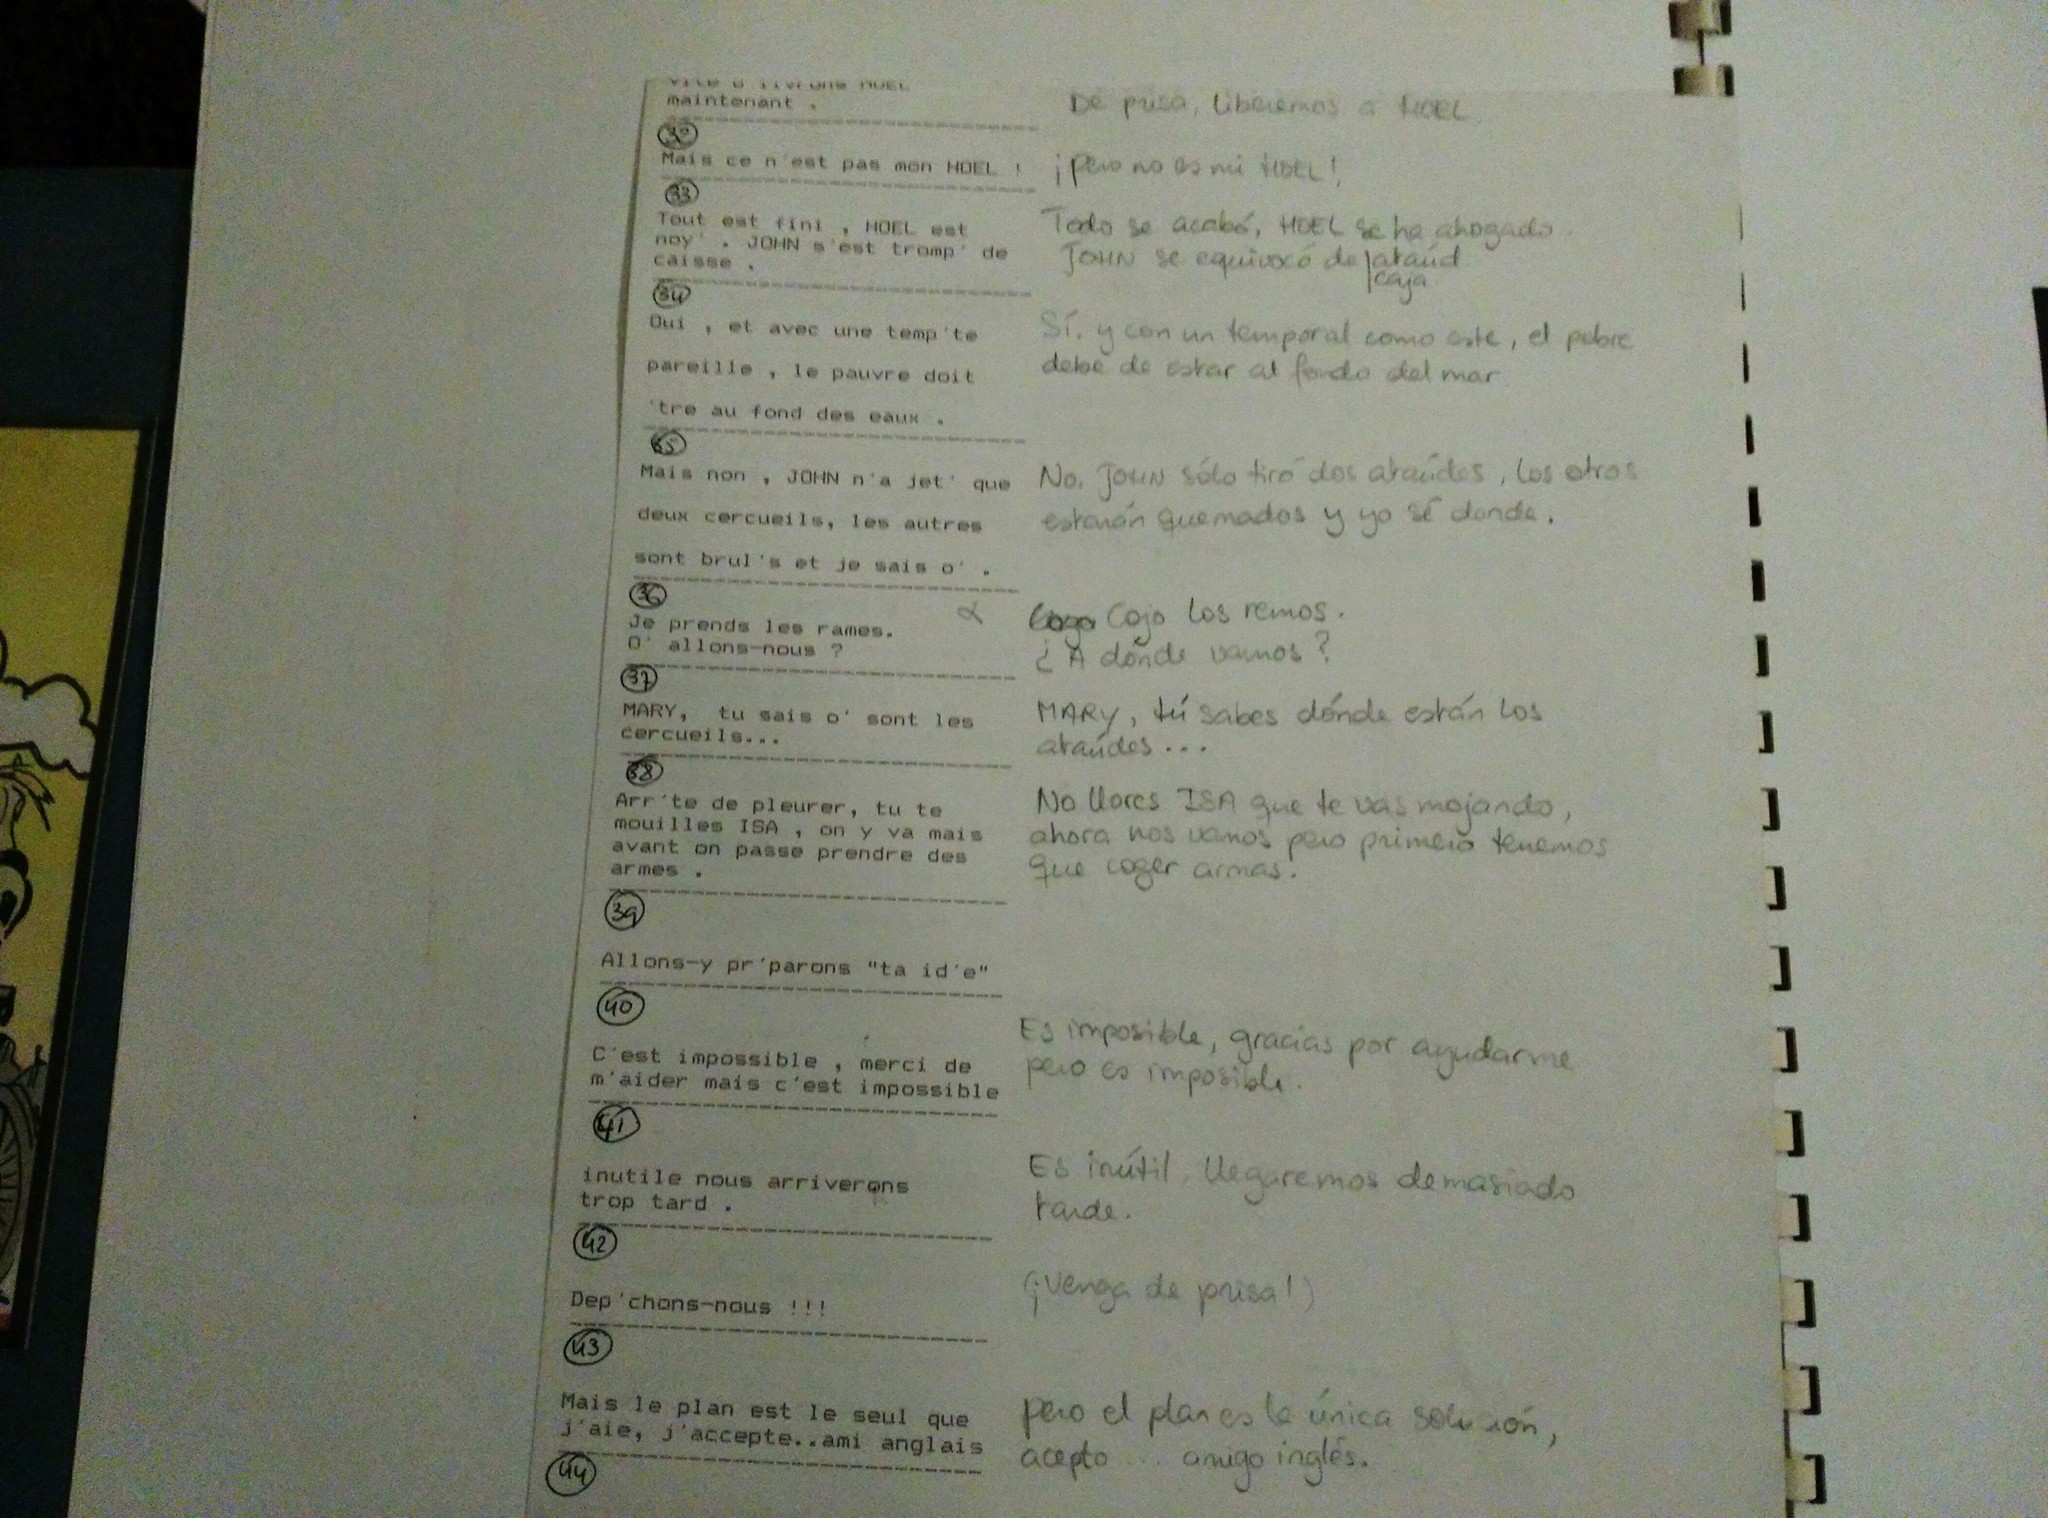 maintenant .
De prisa, liberemos a HOEL
32
Mais ce n'est pas mon HOEL !
¡pero no es mi HOEL!,
33
Tout est fini , HOEL est
noy' . JOHN s'est tromp' de
caisse .
Todo se acabó, HOEL se ha ahogado.
JOHN se equivocó de ataúd
caja
34
Oui , et avec une temp'te
pareille , le pauvre doit
'tre au fond des eaux .
Sí. y con un temporal como este, el pobre
debe de estar al fondo del mar.
35
Mais non , JOHN n'a jet' que
deux cercueils, les autres
sont brul's et je sais o' .
No, JOHN sólo tiró dos ataúdes, los otros
estarán quemados y yo sé donde.
36
Je prends les rames.
O' allons-nous ?
Cojo los remos.
¿A dónde vamos?
37
MARY, tu sais o' sont les
cercueils...
MARY, tú sabes dónde están los
ataúdes...
38
Arr'te de pleurer, tu te
mouilles ISA , on y va mais
avant on passe prendre des
armes .
No llores ISA que te vas mojando,
ahora nos vamos pero primero tenemos
que coger armas.
39
Allons-y pr'parons "ta id'e"
40
C'est impossible , merci de
m'aider mais c'est impossible
Es imposible, gracias por ayudarme
pero es imposible.
41
inutile nous arriverons
trop tard .
Es inútil, llegaremos demasiado
tarde.
42
Dep'chons-nous !!!
(¡Venga de prisa!)
43
Mais le plan est le seul que
j'aie, j'accepte..ami anglais
pero el plan es la única solución,
acepto ... amigo inglés.
44